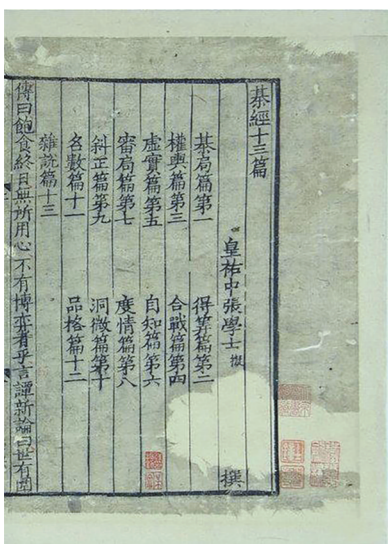 棊經十三篇
皇祐中張學士 撰
棊局篇第一 得筭篇第二
權輿篇第三 合戰篇第四
虛實篇第五 自知篇第六
審局篇第七 度情篇第八
斜正篇第九 洞微篇第十
名數篇十一 品格篇十二
雜說篇十三
傳曰飽食終日無所用心不有博弈者乎言譚新論曰世有